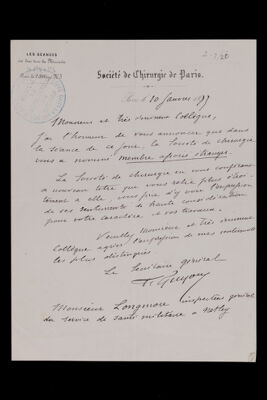 LES SÉANCES
Société de Chirurgie de Paris.
Paris, le 10 Janvier 1877
Monsieur et très honoré Collègue,
J'ai l'honneur de vous annoncer que dans
la séance de ce jour, la Société de chirurgie
vous a nommé membre associé étranger.
La Société de chirurgie en vous conférant
ce nouveau titre que vous
à elle, vous prie d'y voir l'expression
de ses sentiments de haute considération
pour votre caractère et vos travaux.
Veuillez Monsieur et très honoré
Collègue agréer l'expression de mes sentiments
les plus distingués
Le Secrétaire général
F. Guyon
Monsieur Longmore inspecteur général
du service de santé militaire à Netley